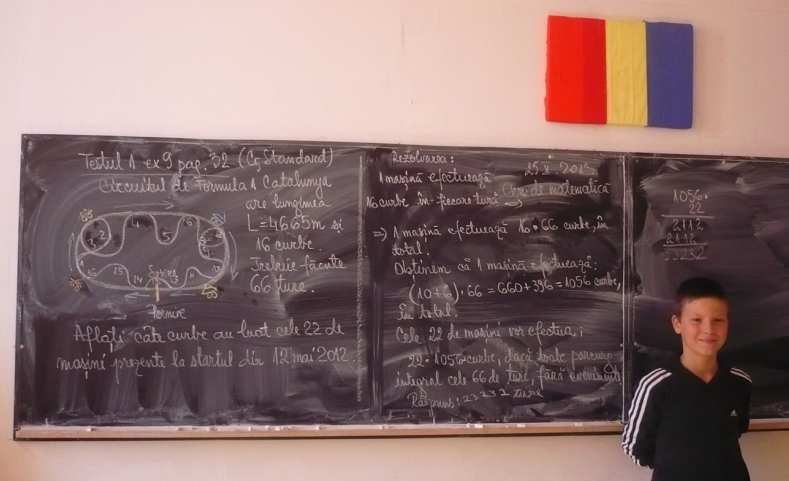 Testul 1 ex 9 pag. 32 (Cç Standard)
Circuitul de Formula 1 Catalunya
are lungimea
L=4665m și
16 curbe.
Trebuie făcute
66 ture.
Pornire
Aflați câte curbe au luat cele 22 de
mașini prezente la startul din 12 mai 2012.
Rezolvarea:
25 X 2013
1 mașină efectuează
Ora de matematică
16 curbe în fiecare tură =>
=> 1 mașină efectuează 16·66 curbe, în
total.
Obținem că 1 mașină efectuează:
(10+6)·66=660+396=1056 curbe,
în total.
Cele 22 de mașini vor efectua:
22·1056 curbe, dacă toate parcurg
integral cele 66 de ture, fără evenimente
Răspuns: 23232 ture
1056·
22
2112
2112
23232
adidas